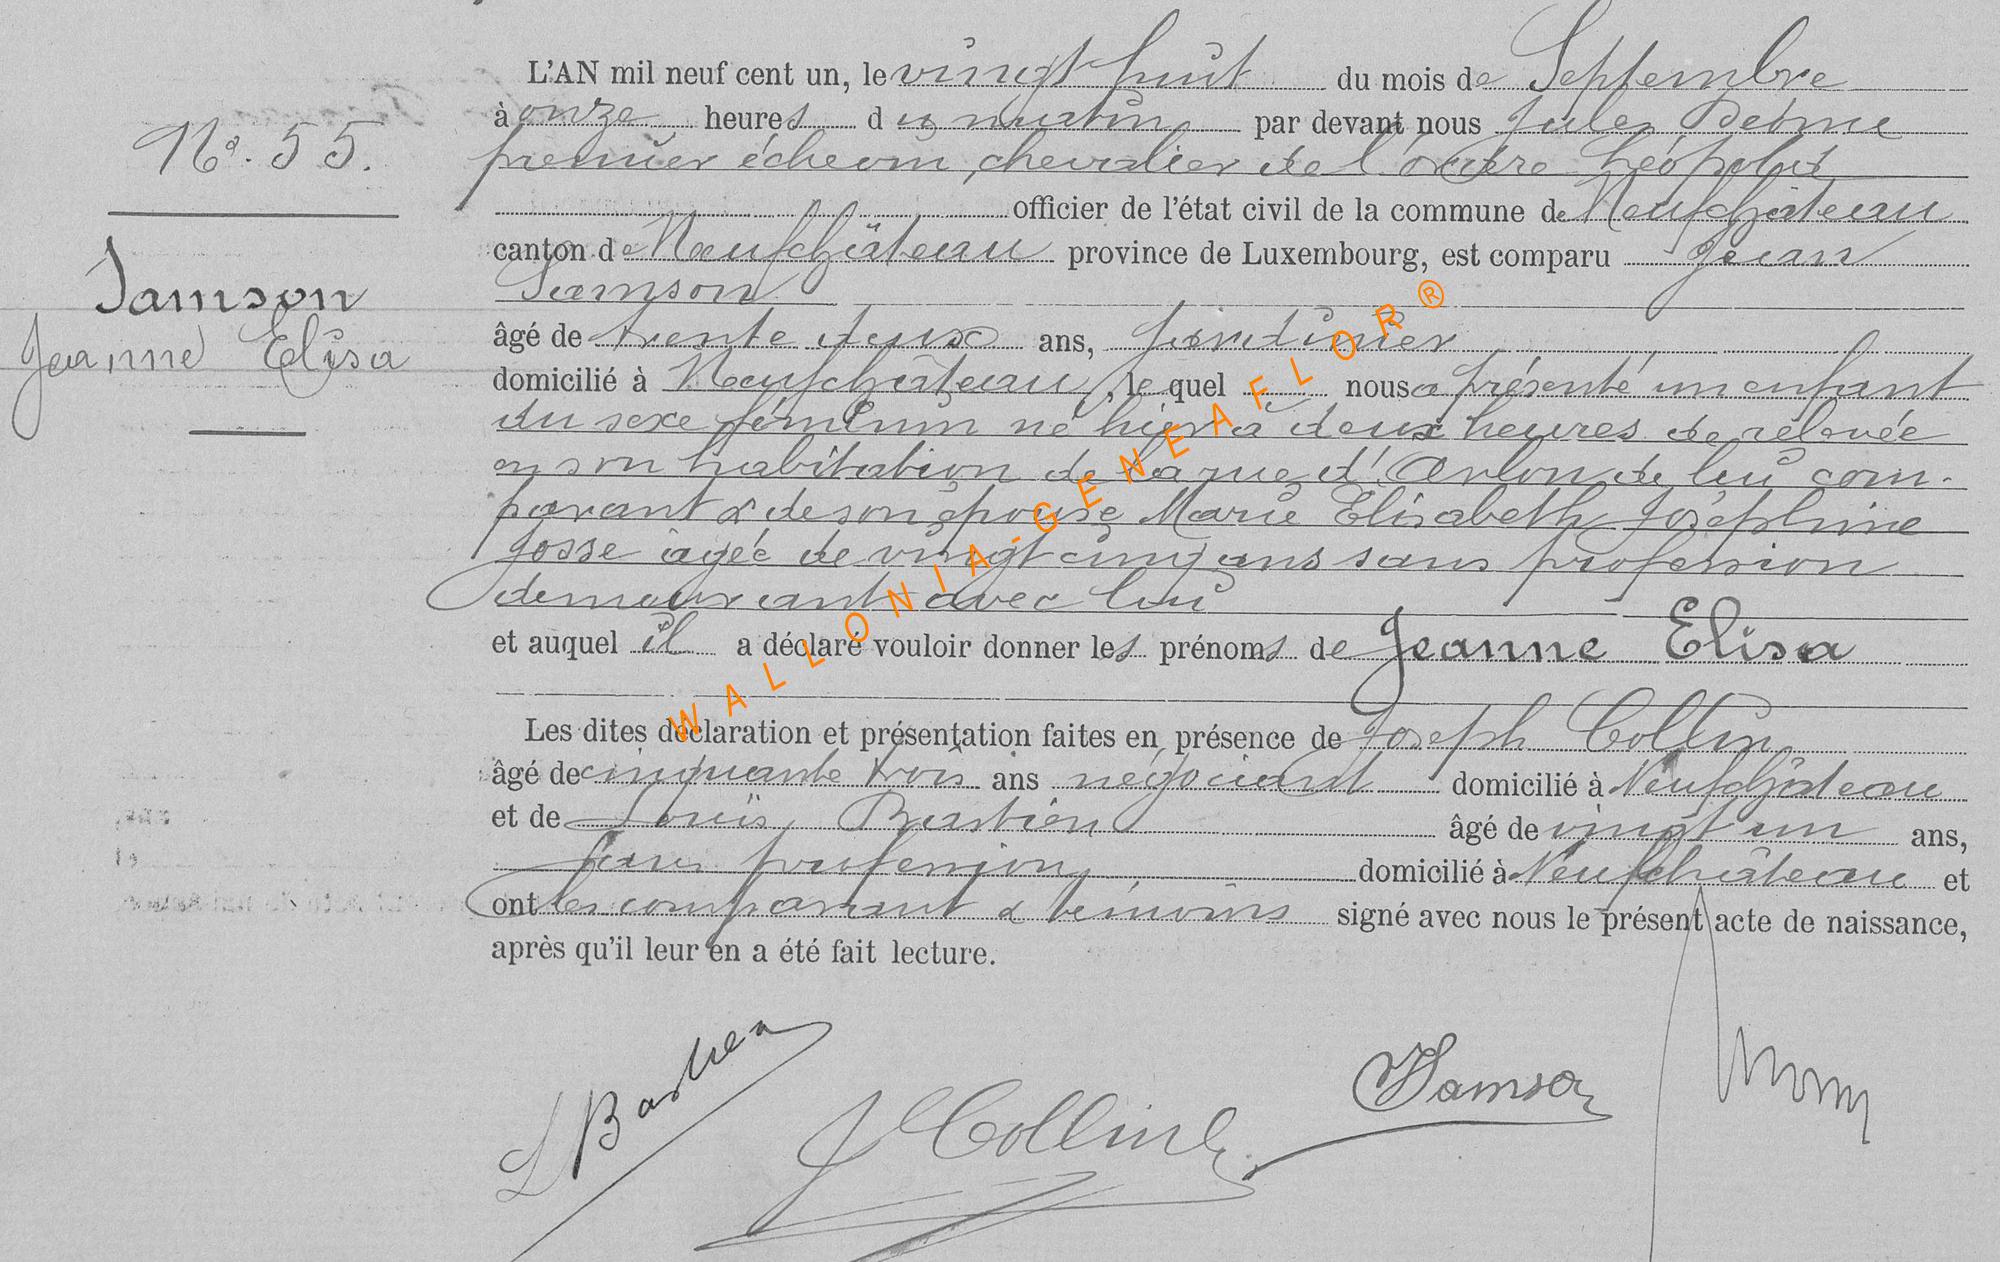 N°. 55.
Samson
Jeanne Elisa
L'AN mil neuf cent un, le vingt huit du mois de Septembre
à onze heures du matin par devant nous Jules
premier échevin, chevalier de l'ordre Léopold
officier de l'état civil de la commune de Neufchâteau
canton de Neufchâteau province de Luxembourg, est comparu Jean
Samson
âgé de trente deux ans, jardinier
domicilié à Neufchâteau, lequel nous a présenté un enfant
du sexe féminin né hier à deux heures de relevée
en son habitation de la rue d'Arlon de lui com-
parant & de son épouse Marie Elisabeth Joséphine
Josse agée de vingt cinq ans sans profession
demeurant avec lui
et auquel il a déclaré vouloir donner les prénoms de Jeanne Elisa
Les dites déclaration et présentation faites en présence de Joseph Collin
âgé de cinquante trois ans négociant domicilié à Neufchâteau
et de Louis Bastien âgé de vingt un ans,
sans profession domicilié à Neufchâteau et
ont les comparant & témoins signé avec nous le présent acte de naissance,
après qu'il leur en a été fait lecture.
L Bastien
J Collin
Samson
WALLONIA-GENEAFLOR®